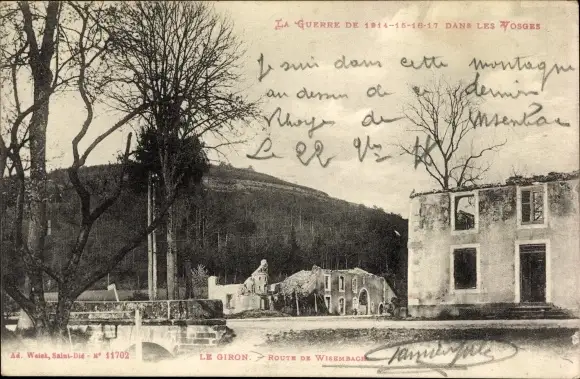 LA GUERRE DE 1914-15-16-17 DANS LES VOSGES
Je suis dans cette montagne
au dessus de ce dernier
de
Le 22 9bre 18
Ad. Weick, Saint-Dié - Nº 11702
LE GIRON. - ROUTE DE WISEMBACH